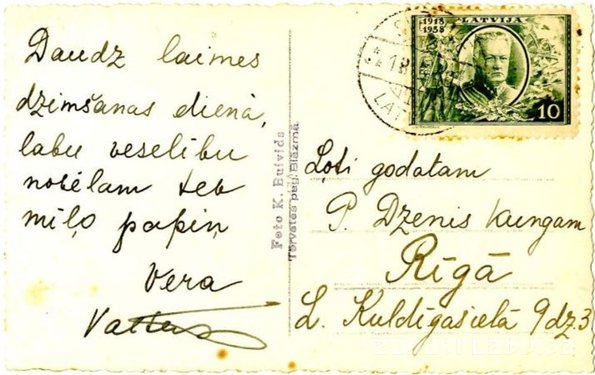 Daudz laimes
dzimšanas dienā,
labu veselību
novēlam tev
mīļo papiņ
Vera
Foto K. Buivids
Tērvetes pag. Blāzmā
1918
1938
LATVIJA
10
Ļoti godātam
P. Dzenis kungam
Rīgā
L. Kuldīgasielā 9 dz.3